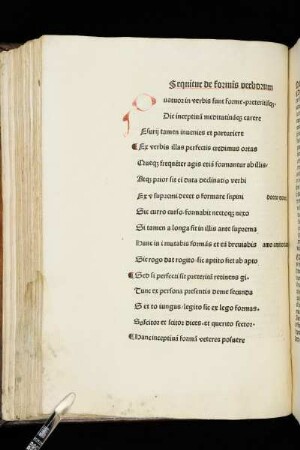 Sequitur de formis verborum
Quatuor in verbis sunt forme preteritisque
Dic inceptiua meditatiuaque carere
Esurii tamen inuenies et parturiere
Ex verbis illas perfectis credimus ortas
Queque frequenter agis etiam formantur ab illis
Atque prior sit ei data declinatio verbi
Ex v supremi decet o formare supini
Sic curro curso formabit nectoque nexo
Si tamen a longa sit in illis ante suprema
Hanc in i mutabis formans et eam breuiabis
Sic rogo dat rogito sic aptito fiet ab apto
Sed si perfecti sit preteritum retinens gi
Tunc ex persona presentis deme secunda
S et to iungas legito sic ex lego formas
Sciscitor et scitor dices et querito sector
Hanc inceptiuam formam veteres posuere